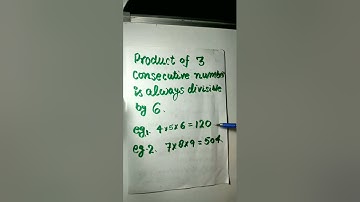 Product of 3
consecutive number
is always divisible
by 6.
eg1. 4×5×6=120
eg.2. 7×8×9=504